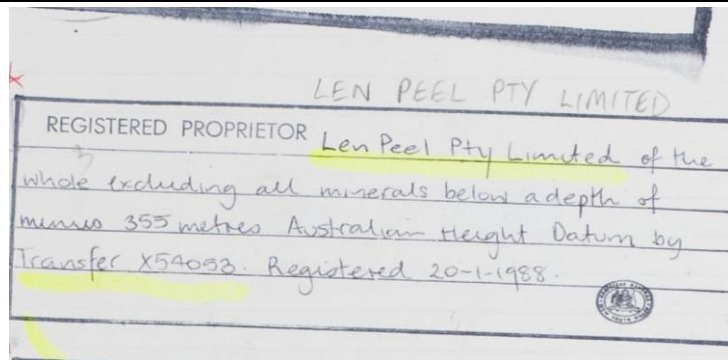 LEN PEEL PTY LIMITED
REGISTERED PROPRIETOR Len Peel Pty Limited of the
whole excluding all minerals below a depth of
minus 355 metres Australian Height Datum by
Transfer X54053. Registered 20-1-1988.